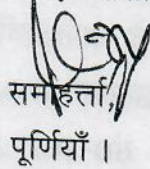 समाहर्त्ता,
पूर्णियाँ ।